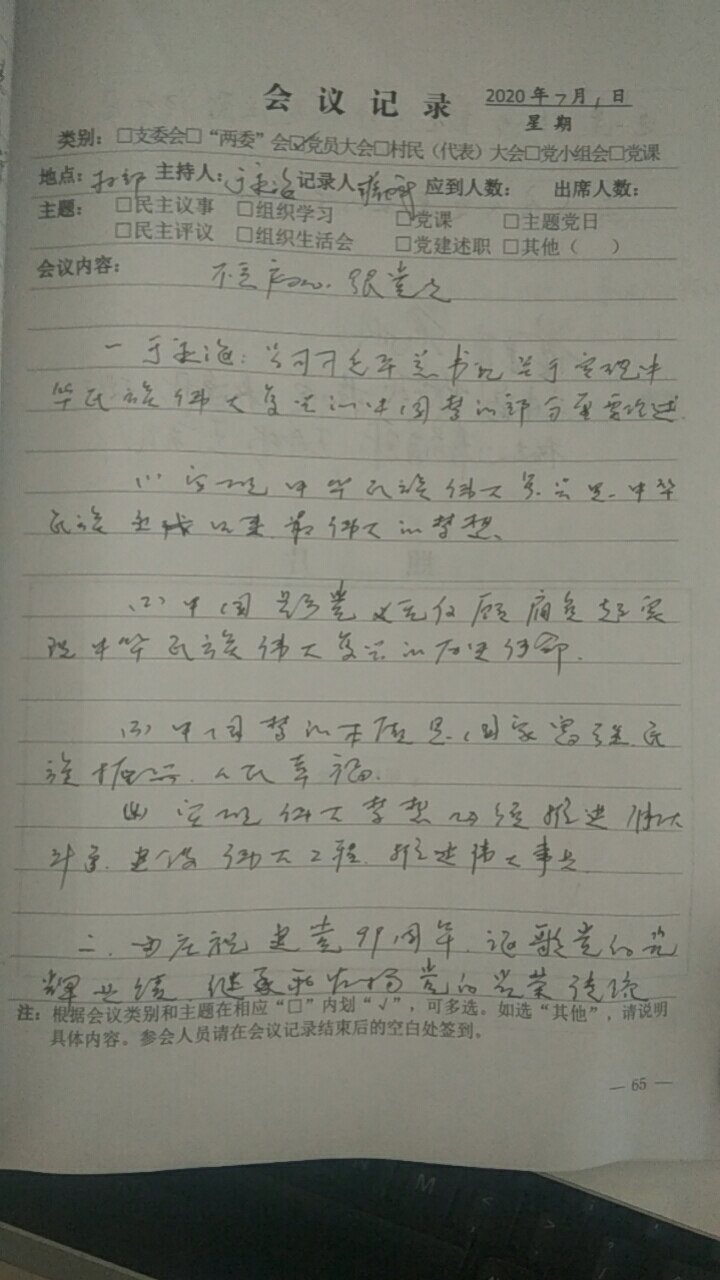 会议记录 2020年7月1日
星期
类别：□支委会□“两委”会☑党员大会□村民（代表）大会□党小组会□党课
地点：村部 主持人：于永海 记录人 应到人数： 出席人数：
主题：□民主议事 □组织学习 □党课 □主题党日
□民主评议 □组织生活会 □党建述职 □其他（ ）
会议内容：不忘初心、跟党走
一 于永海：学习习近平总书记关于实现中
华民族伟大复兴的中国梦的部分重要论述
(1) 实现中华民族伟大复兴是中华
民族近代以来最伟大的梦想、
(2) 中国共产党义无反顾肩负起实
现中华民族伟大复兴的历史使命.
(3) 中国梦的本质是国家富强、民
族振兴、人民幸福.
(4) 实现伟大梦想必须推进伟大
斗争、建设伟大工程、推进伟大事业
二、庆祝建党99周年、讴歌党的光
辉业绩、继承和发扬党的光荣传统
注：根据会议类别和主题在相应“□”内划“√”，可多选。如选“其他”，请说明
具体内容。参会人员请在会议记录结束后的空白处签到。
— 65 —
M